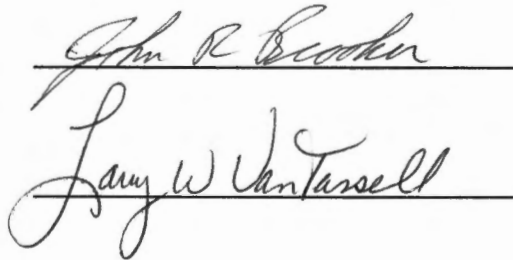 John R Brooker
Larry W VanTassell